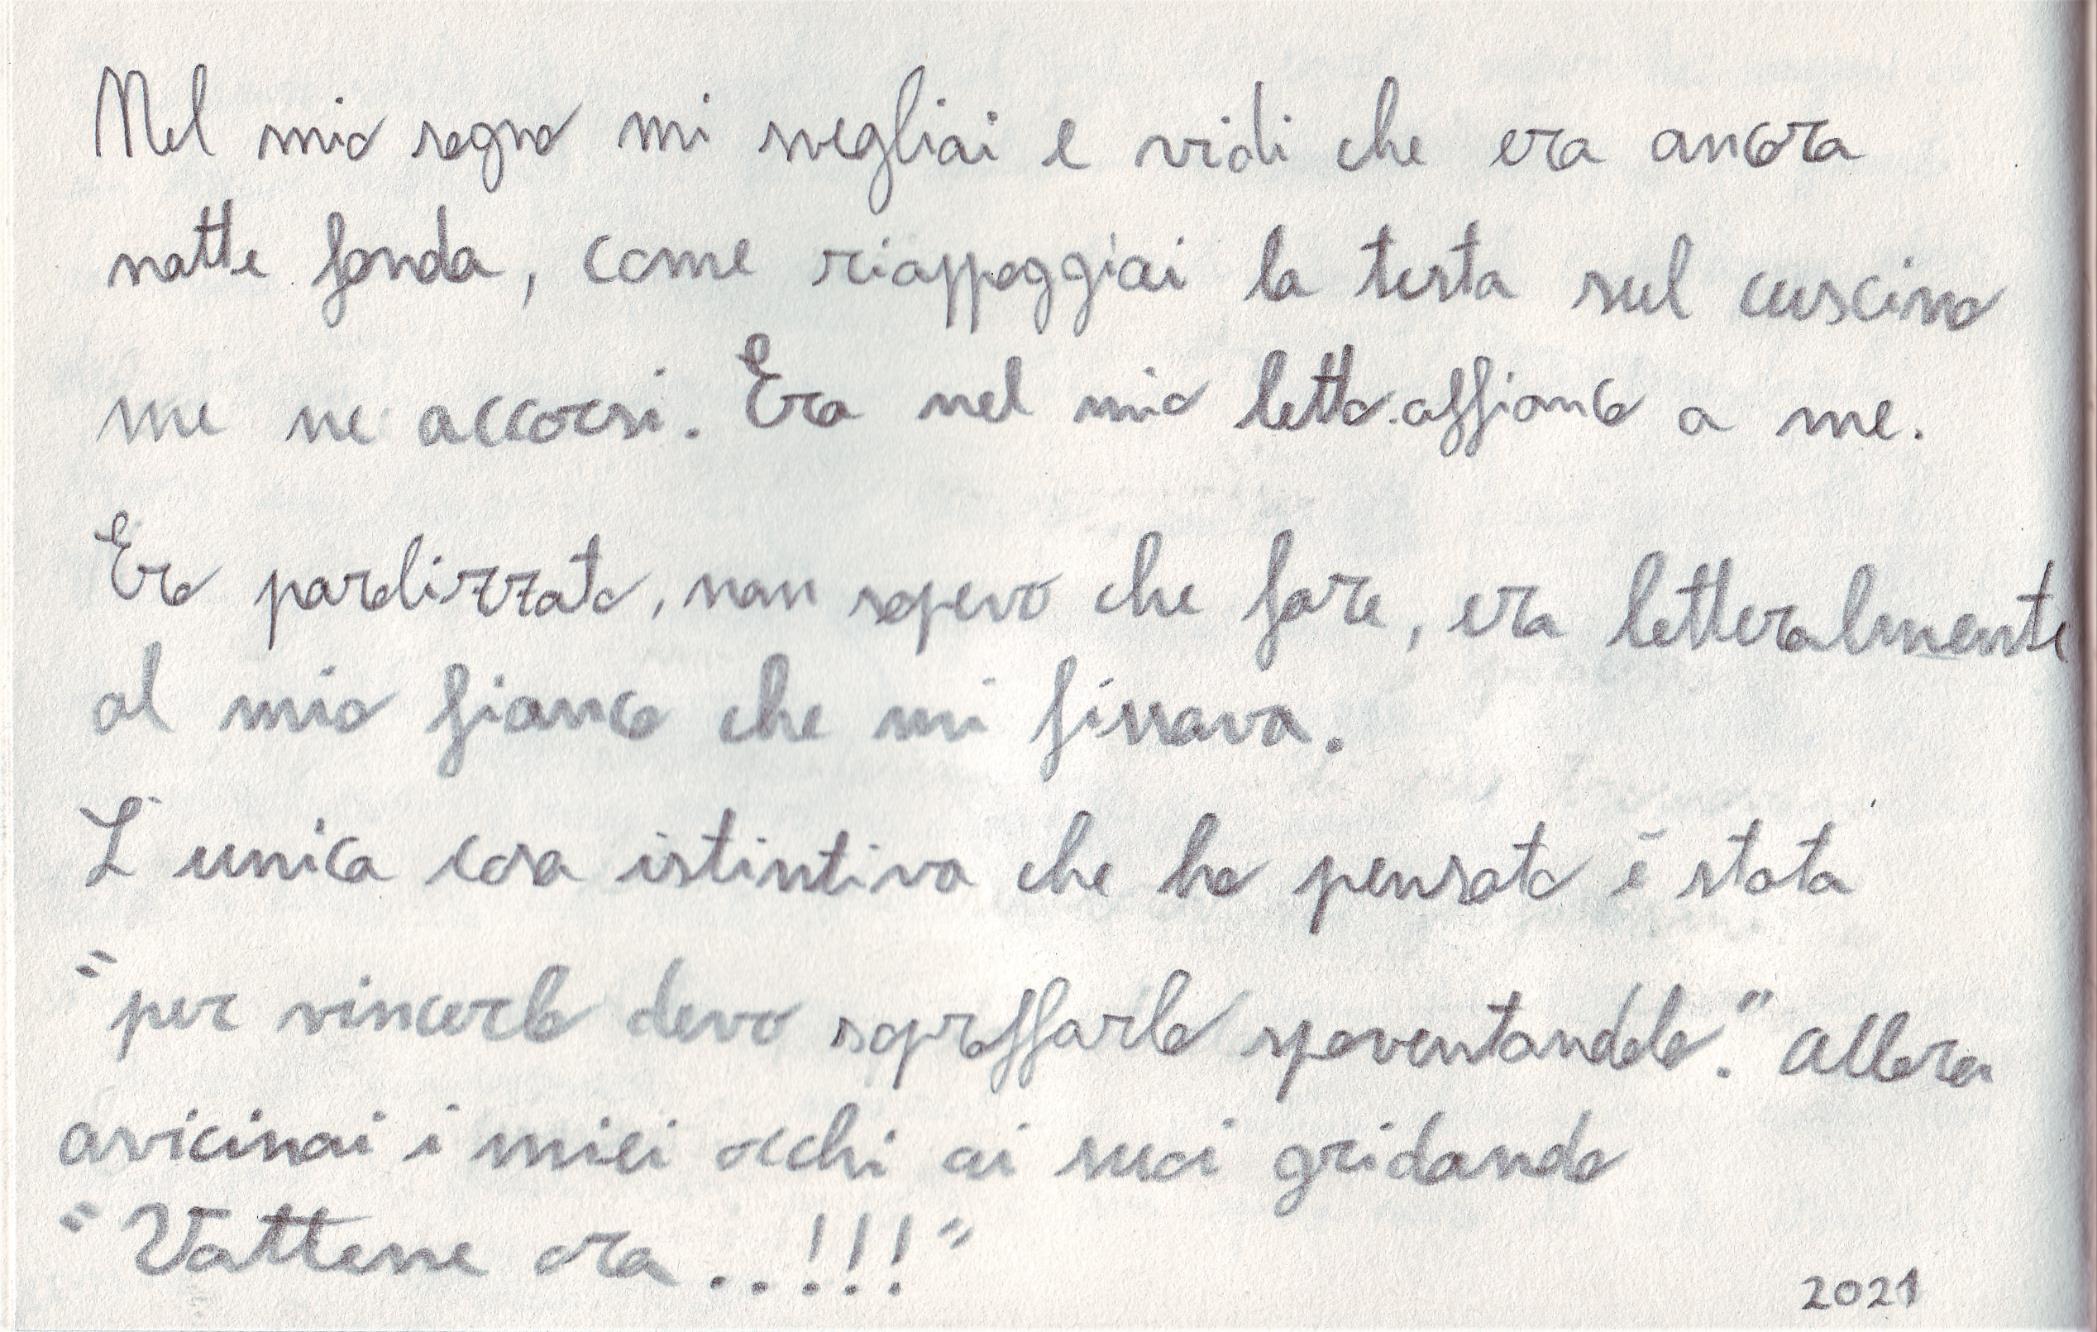 Nel mio sogno mi svegliai e vidi che era ancora
notte fonda, come riappoggiai la testa sul cuscino
me ne accorsi. Era nel mio letto affianco a me.
Ero paralizzato, non sapevo che fare, era letteralmente
al mio fianco che mi fissava.
L'unica cosa istintiva che ho pensato è stata
"per vincerlo devo sopraffarlo spaventandolo." Allora
avicinai i miei occhi ai suoi gridando
"Vattene ora..!!!"
2021